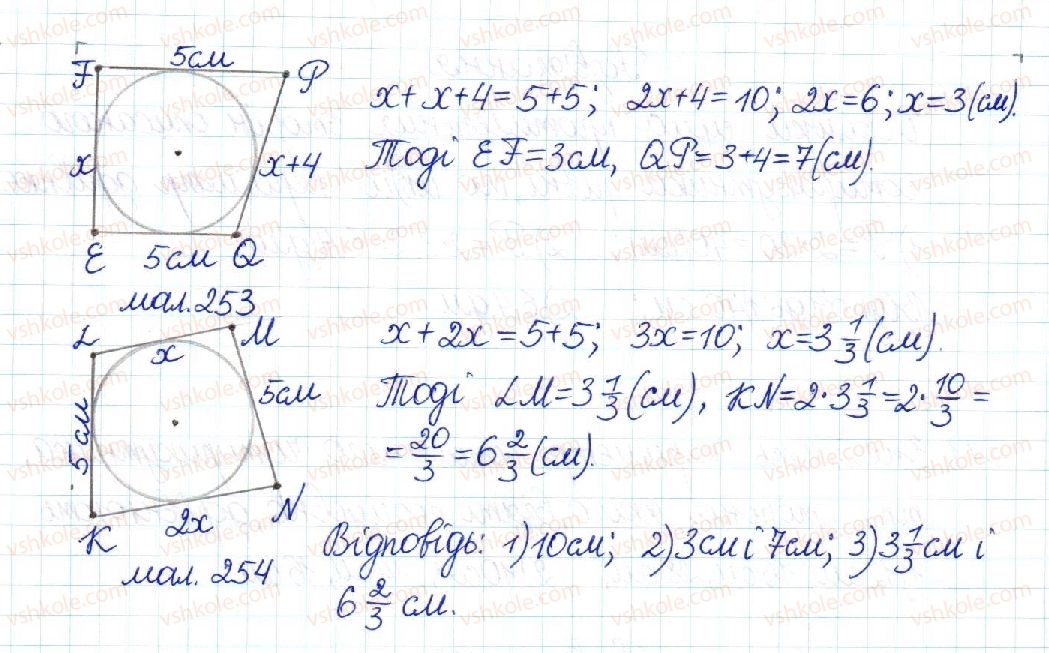 F 5см P
x + x + 4 = 5 + 5; 2x + 4 = 10; 2x = 6; x = 3 (см).
x x+4
Тоді EF = 3см, QP = 3 + 4 = 7 (см).
E 5см Q
мал. 253
L x M
x + 2x = 5 + 5; 3x = 10; x = 3 1/3 (см).
5см 5см
Тоді LM = 3 1/3 (см), KN = 2 · 3 1/3 = 2 · 10/3 =
= 20/3 = 6 2/3 (см).
K 2x N
мал. 254
Відповідь: 1) 10см; 2) 3см і 7см; 3) 3 1/3 см і
6 2/3 см.
vshkole.com